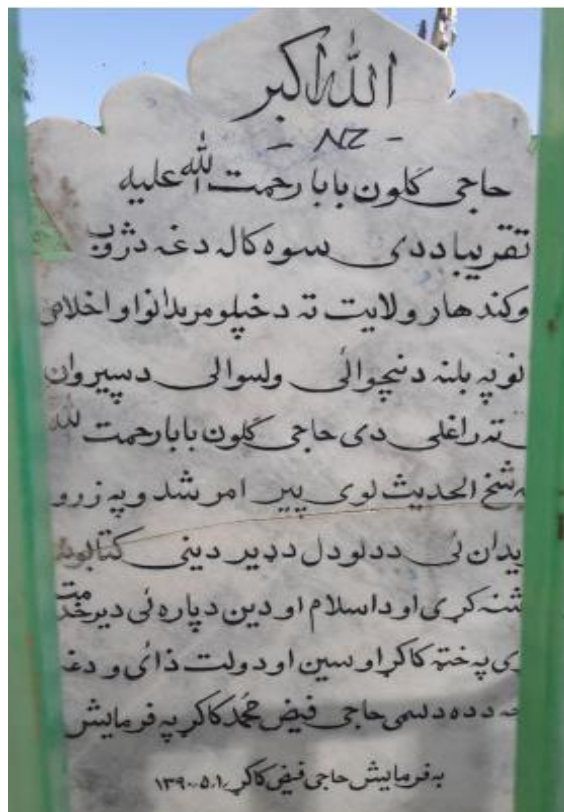 الله اکبر
حاجی گلون بابا رحمت الله علیه
تقریبا ددی سوه کاله دغه دژوب
وکندهار ولایت ته دخپلو مریدانو او اخلاص
نو په بلنه دنیچوالی ولسوالی دسپیروان
ته راغلی دی حاجی گلون بابا رحمت لله
شخ الحدیث لوی پیر امر شد و په زرو
یدان ئی ددلودل ددیر دینی کتابونه
شنه کړی او داسلام او دین دپاره ئی دیر خدمت
ی په خته کاکړ او سین او دولت ذائی و دغه
دده دلسی حاجی فیض محمد کاکړ په فرمایش
به فرمایش حاجی فیض کاکړ ۱۳۹۰.۵.۱